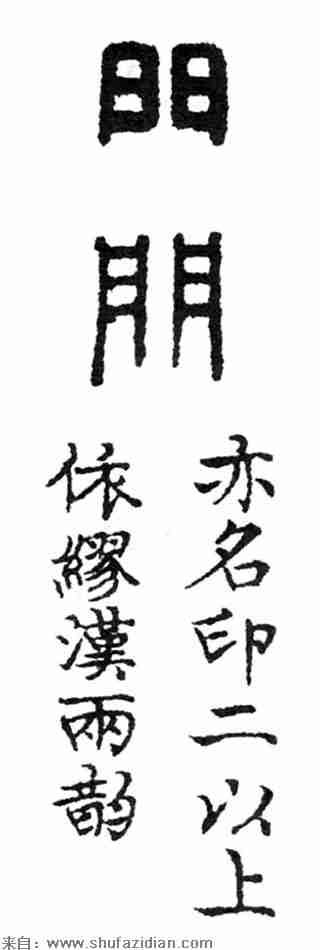 門
門
亦名印二以上
依繆漢兩韵
来自：www.shufazidian.com